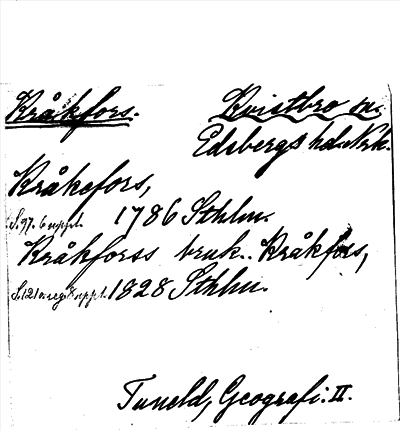 Kråkfors. Kvistbro sn.
Edsbergs hd. Nrk.
Kråkefors,
S. 97. 6 uppl. 1786 Sthlm.
Kråkforss bruk. Kråkfors,
S. 121 o. reg. 8 uppl. 1828 Sthlm.
Tuneld, Geografi. II.